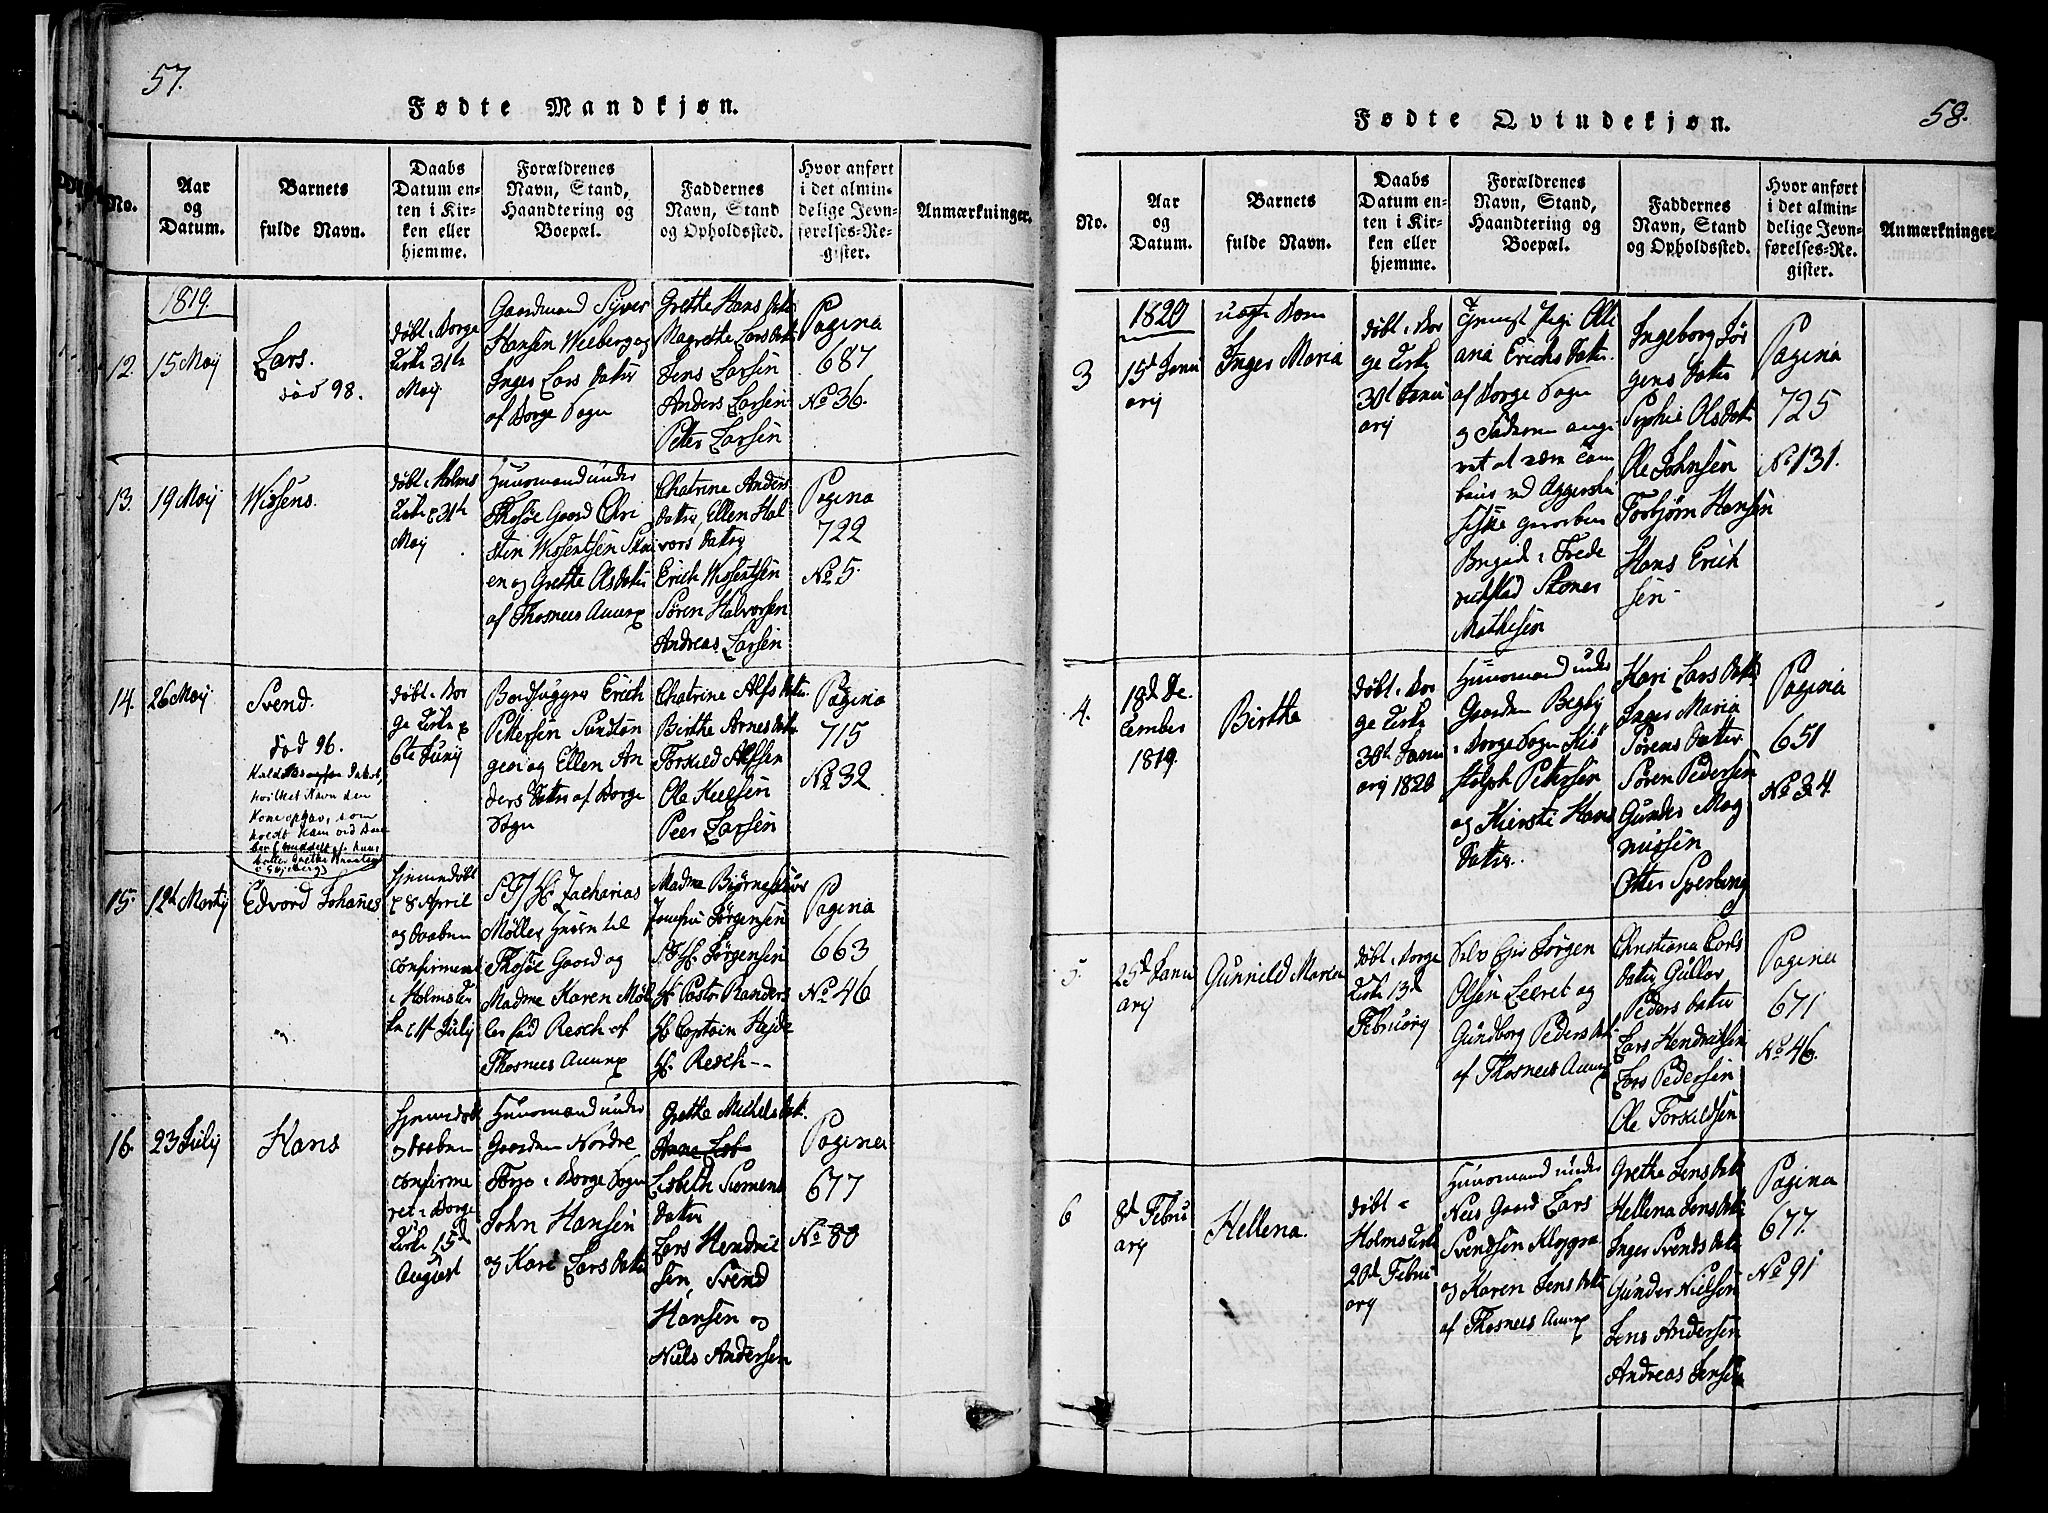 57.
Fødte Mandkjøn.
No.
Aar
og
Datum.
Barnets
fulde Navn.
Daabs
Datum en-
ten i Kir-
ken eller
hjemme.
Forældrenes
Navn, Stand,
Haandtering og
Boepæl.
Faddernes
Navn, Stand
og Opholdssted.
Hvor anført
i det almin-
delige Jevn-
førelses-Re-
gister.
Anmærkninger.
1819.
12.
15 Maj
Lars.
død 98.
døbt i Borge
Kirke 31te
Maj
Gaardmand Syver
Hansen Weeberg og
Inger Lars Datter
af Borge Sogn
Grethe Hans Dat.
Magrethe Lars Dat.
Jens Larsen
Anders Larsen
Petter Larsen
Pagina
687
No 36.
13.
19 Maj
Wissens.
døbt i Holms
Kirke 31te
Maj
Huusmand under
Thosøe Gaard Chri
sten Wissentsen
en og Grethe Olsdatter
af Thosnees Annex
Chatrine Anders
datter, Ellen Hal
vors datter
Erich Wissentsen
Søren Halvorsen
Andreas Larsen
Pagina
722
No 5.
14.
26 Maj
Svend.
død 96.
hvilket Navn den
Kone opgav, som
holdt ham ved Daa
ben
døbt i Bor
ge Kirke
6te Junij
Bordhugger Erich
Pettersen Sundløn
gen og Ellen An
ders Datter af Borge
Sogn
Chatrine Alfs Dat.
Birthe Arnes Dat.
Torkild Alfsen
Ole
Peer Larsen
Pagina
715
No 32
15.
12te Martij
Edvard Johanes
hjemmedøbt
8 April
og Daaben
confirmeret
i Holms Kir
ke 1ste Julij
Zacharias
Møller
Thosøe Gaard og
Madme Karen Møl
ler fød Resch af
Thosnees Annex
Madme
Jomfru Jørgensen
Jørgensen
Hr Pastor Randers
Hr Captain Hejde
Hr Resch --
Pagina
663
No 46
16.
23 Julij
Hans
hjemmedøbt
og Daaben
confirme
ret i Borge
Kirke 15de
August
Huusmand under
Gaarden Nordre
Torp i Borge Sogn
John Hansen
og Kari Lars Datter
Grethe Michels Dat.
Anne
Lisbeth Siomens
datter
Lars Hendric
sen, Svend
Hansen og
Niels Andersen
Pagina
677
No 80
58.
Fødte Qvindekjøn.
No.
Aar
og
Datum.
Barnets
fulde Navn.
Daabs
Datum en-
ten i Kir-
ken eller
hjemme.
Forældrenes
Navn, Stand,
Haandtering og
Boepæl.
Faddernes
Navn, Stand
og Opholdssted.
Hvor anført
i det almin-
delige Jevn-
førelses-Re-
gister.
Anmærkninger.
1820
3
15de Janu
arij
uægte Barn
Inger Maria
døbt i Bor
ge Kirke
30te Janu
arij
Pige Olle
ana Erichs Datter
af Borge Sogn
og Faderen ange
vet at være
ved Aggershu
siske
Brigade i Frede
richstad
Mathisen
Ingeborg Jør
gens Datter
Sophie Olsdat.
Ole Johnsen
Torbjørn Hansen
Hans Erich
sen -
Pagina
725
No 131.
4.
18de De
cember
1819.
Birthe
døbt i Bor
ge Kirke
30te Janu
arij 1820
Huusmand under
Gaarden Begby
i Borge Sogn Kis
stolph Pettersen
og Kiersti Hans
Datter.
Kari Lars Datter
Inger Maria
Sørens Datter
Søren Pedersen
Gunder Mag
nussen
Otter Sperling
Pagina
651
No 34.
5.
25de Janu
arij
Gunnild Maria
døbt i Borge
Kirke 13de
Februarij
Selv Eier Jørgen
Olsen Leeret og
Gundborg Peders Dat.
af Thosnees Annex
Christiana Carls
datter Gullov
Peders datter
Lars Hendricsen
Lars Pedersen
Ole Torkildsen
Pagina
671
No 46.
6
8de Febru
arij
Hellena.
døbt i
Holms Kirke
20de Febru
arij
Huusmand under
Nees Gaard Lars
Svendsen
og Karen Jens Datter
af Thosnees Annex
Grethe Jens Datter
Hellena Jens Dat.
Inger Svends Datter
Gunder Nielsen
Jens Andersen
Andreas Jensen
Pagina
677.
No 91